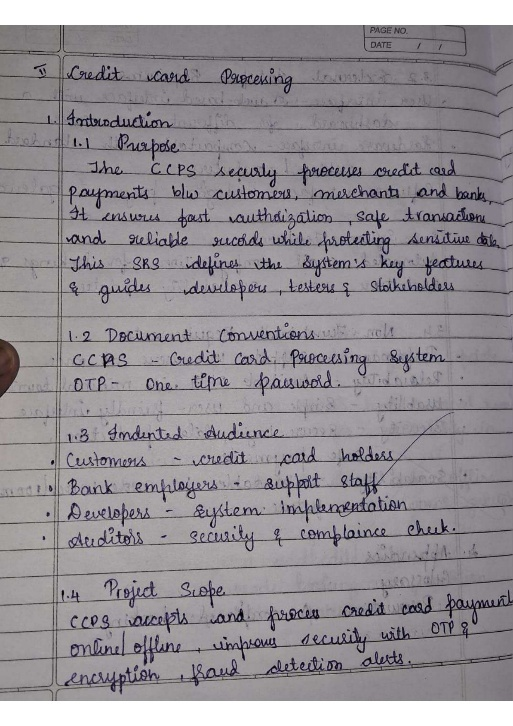 PAGE NO.
DATE / /
V Credit Card Processing
1. Introduction
1.1 Purpose
The CCPS securly processes credit card
payments b/w customers, merchants and banks,
It ensures fast authorization, safe transactions
and reliable records while protecting sensitive data.
This SRS defines the System's key features
& guides developers, testers & Stakeholders
1.2 Document Conventions.
CCPS - Credit Card Processing System
OTP - One time password.
1.3 Indented Audience
• Customers - credit card holders
• Bank employers - support staff
• Developers - System implementation
• Auditors - security & complaince check.
1.4 Project Scope
CCPS accepts and proces credit card payment
online/offline, improves security with OTP &
encryption, fraud detection alerts.